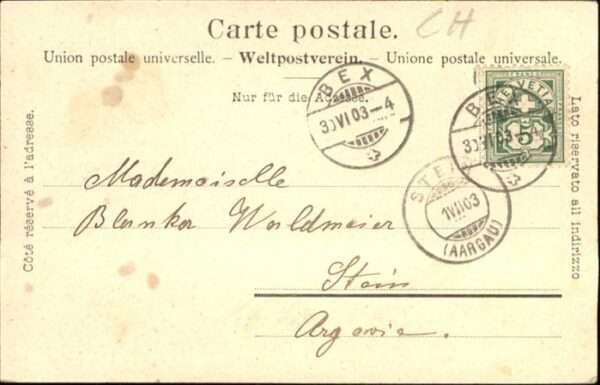 Carte postale.
CH
Union postale universelle. – Weltpostverein. – Unione postale universale.
Nur für die Adresse.
BEX
30 VI 03 – 4
BEX
30 VI 03
HELVETIA
FRANCO
5
STEIN
1 VII 03
(AARGAU)
Côté réservé à l'adresse.
Lato riservato all indirizzo
Mademoiselle
Blanka Waldmeier
Stein
Argovie.